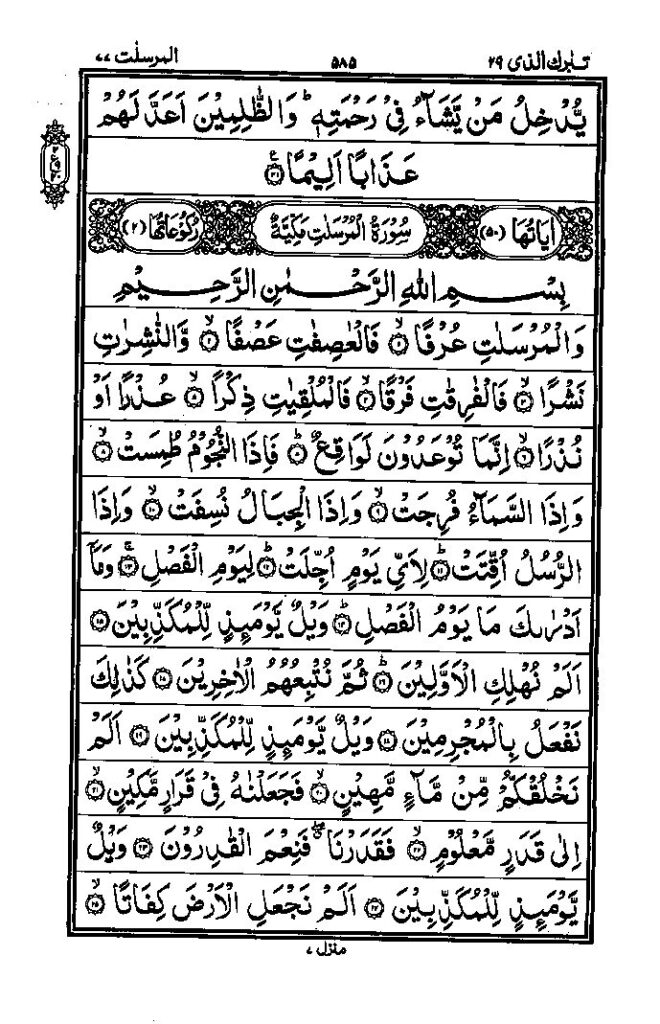 تبٰرك الذی ۲۹ ۵۸۵ المرسلٰت ۷۷
يُّدْخِلُ مَنْ يَّشَآءُ فِيْ رَحْمَتِهٖ ؕ وَالظّٰلِمِيْنَ اَعَدَّ لَهُمْ
عَذَابًا اَلِيْمًا ۳۱
اٰيَاتُهَا (۵۰) سُوْرَةُ الْمُرْسَلٰتِ مَكِّيَّةٌ رُكُوْعَاتُهَا (۲)
بِسْمِ اللهِ الرَّحْمٰنِ الرَّحِيْمِ
وَالْمُرْسَلٰتِ عُرْفًا ۱ فَالْعٰصِفٰتِ عَصْفًا ۲ وَّالنّٰشِرٰتِ
نَشْرًا ۳ فَالْفٰرِقٰتِ فَرْقًا ۴ فَالْمُلْقِيٰتِ ذِكْرًا ۵ عُذْرًا اَوْ
نُذْرًا ۶ اِنَّمَا تُوْعَدُوْنَ لَوَاقِعٌ ۷ فَاِذَا النُّجُوْمُ طُمِسَتْ ۸
وَاِذَا السَّمَآءُ فُرِجَتْ ۹ وَاِذَا الْجِبَالُ نُسِفَتْ ۱۰ وَاِذَا
الرُّسُلُ اُقِّتَتْ ۱۱ لِاَيِّ يَوْمٍ اُجِّلَتْ ۱۲ لِيَوْمِ الْفَصْلِ ۱۳ وَمَآ
اَدْرٰىكَ مَا يَوْمُ الْفَصْلِ ۱۴ وَيْلٌ يَّوْمَئِذٍ لِّلْمُكَذِّبِيْنَ ۱۵
اَلَمْ نُهْلِكِ الْاَوَّلِيْنَ ۱۶ ثُمَّ نُتْبِعُهُمُ الْاٰخِرِيْنَ ۱۷ كَذٰلِكَ
نَفْعَلُ بِالْمُجْرِمِيْنَ ۱۸ وَيْلٌ يَّوْمَئِذٍ لِّلْمُكَذِّبِيْنَ ۱۹ اَلَمْ
نَخْلُقْكُّمْ مِّنْ مَّآءٍ مَّهِيْنٍ ۲۰ فَجَعَلْنٰهُ فِيْ قَرَارٍ مَّكِيْنٍ ۲۱
اِلٰى قَدَرٍ مَّعْلُوْمٍ ۲۲ فَقَدَرْنَا فَنِعْمَ الْقٰدِرُوْنَ ۲۳ وَيْلٌ
يَّوْمَئِذٍ لِّلْمُكَذِّبِيْنَ ۲۴ اَلَمْ نَجْعَلِ الْاَرْضَ كِفَاتًا ۲۵
منزل ۷